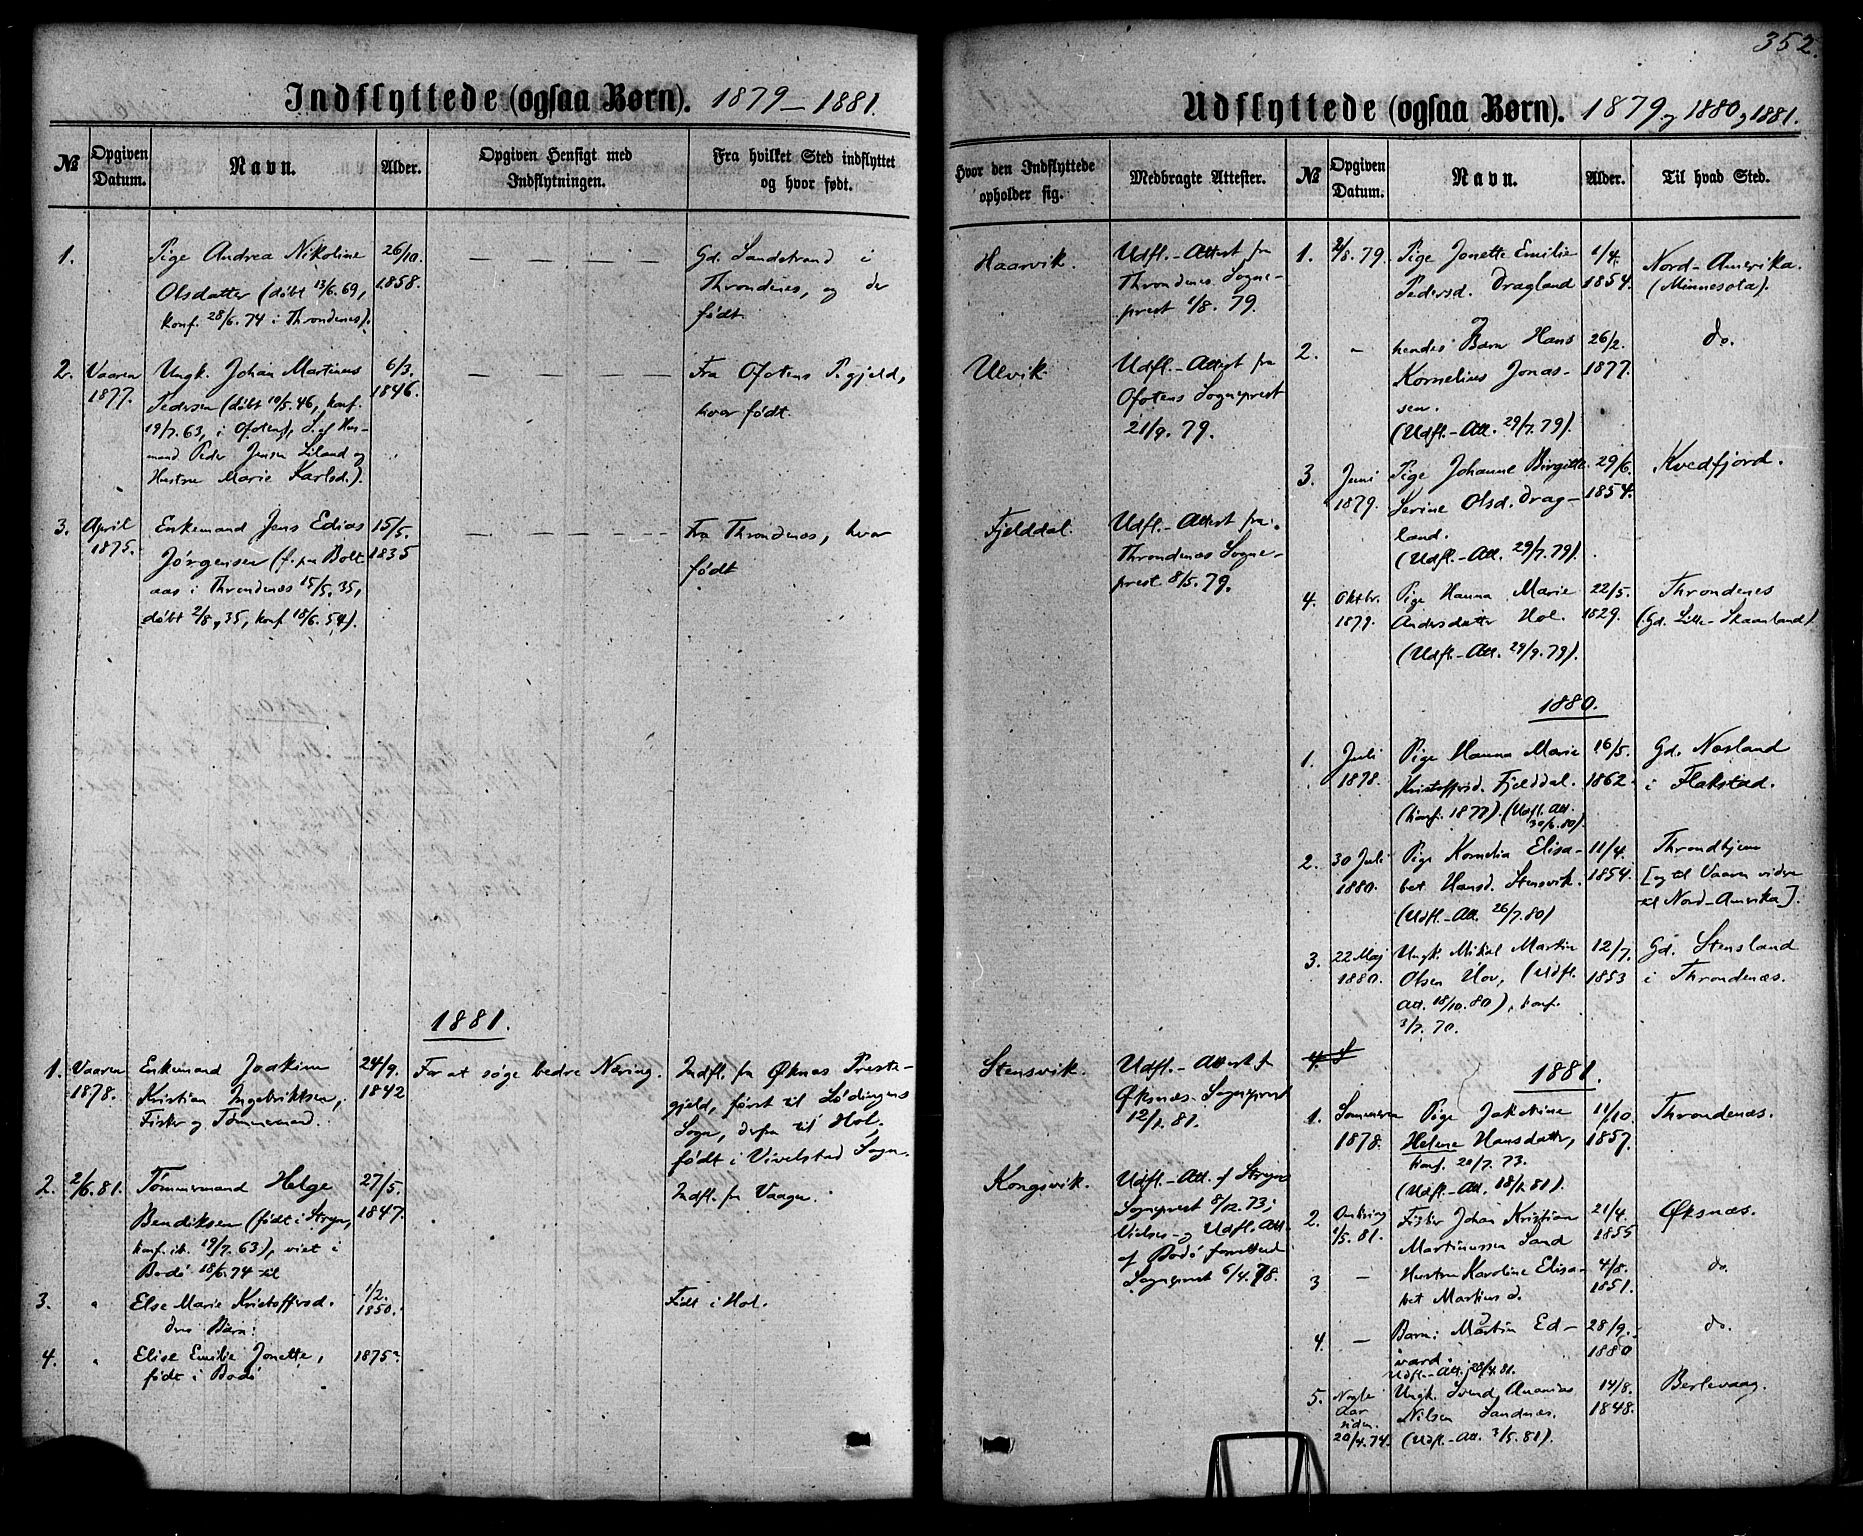 352.
Indflyttede (ogsaa Børn). 1879 – 1881.
№
Opgiven Datum.
Navn.
Alder.
Opgiven Hensigt med Indflytningen.
Fra hvilket Sted indflyttet og hvor født.
1.
Pige Andrea Nikoline
Olsdatter (døbt 13/6.69,
konf. 28/6.74 i Throndenes).
26/10.
1858.
— — — —
Gd. Sandstrand i
Throndenes, og der
født.
2.
Vaaren
1877.
Ungk. Johan Martinus
Pedersen (døbt 10/5.46, konf.
19/7.63, i Ofoten), S. af Hus-
mand Peder Jensen Liland og
Hustru Marie Karlsd.).
6/3.
1846.
— — — —
Fra Ofotens P.gjeld,
hvor født.
3.
April
1875.
Enkemand Jens Edias
Jørgensen (f. pa Bolt
aas i Throndenæs 15/5.35,
døbt 2/8,35, konf 18/6.54).
15/5.
1835
— — — — —
Fra Throndenæs, hvor
født
1881.
1.
Vaaren
1878.
Enkemand Joakim
Kristian Ingebriktsen,
Fisker og Tømmermand.
24/9.
1842
For at søge bedre Næring.
Indfl. fra Øksnæs Præste-
gjeld, først til Lødingens
Sogn, derfra til Hol,
født i Vivelstad Sogn.
2.
2/6.81.
Tømmermand Helge
Bendiksen (født i Stryn,
konf. ib. 19/7.63), viet i
Bodø 18/6.74 til
27/5.
1847.
Indfl. fra Vaagen.
3.
"
Else Marie Kristoffersd.
deres Barn:
1/2.
1850.
Født i Hol.
4.
"
Elise Emilie Jonette,
født i Bodø
1875.
Udflyttede (ogsaa Børn). 1879 og 1880 og 1881.
Hvor den Indflyttede opholder sig.
Medbragte Attester.
№
Opgiven Datum.
Navn.
Alder.
Til hvad Sted.
Haarvik.
Udfl.-Attest fra
Throndenes Sogne-
prest 1/8.79.
Ulvik.
Udfl.-Attest fra
Ofotens Sogneprest
21/9.79.
Fjelddal.
Udfl.-Attest fra
Throndenæs Sogne-
prest 8/5.79.
Stensvik.
Udfl.-Attest f
Øksnæs Sogneprest
12/1.81.
Kongsvik.
Udfl.-Att. f Stryns
Sogneprest 8/12.73;
Vielses- og Udfl.Att.
af Bodø forrettend
Sogneprest 6/4.78.
1.
2/8.79.
Pige Jonette Emilie
Pedersd. Dragland
1/4.
1854.
Nord-Amerika.
(Minnesota).
2.
-
og
hendes Barn Hans
Kornelius Jonas-
sen.
(Udfl.-Att. 29/7.79).
26/2.
1877.
do.
3.
Juni
1879.
Pige Johanne Birgitte
Serine Olsd. Drag-
land.
(Udfl.-Att. 29/7.79).
29/6.
1854.
Kvedfjord.
4.
Oktbr.
1879.
Pige Hanna Marie
Andersdatter Hol.
(Udfl.-Att. 29/9.79).
22/5.
1829.
Throndenes
(Gd. Lille-Skaanland)
1880.
1.
Juli
1878.
Pige Hanna Marie
Kristoffersd. Fjelddal.
(konf. 1877). (Udfl. Att.
30/6.80).
16/5.
1862.
Gd. Nesland
i Flakstad.
2.
30 Juli
1880.
Pige Kornelia Elisa-
bet Hansd. Stensvik.
(Udfl.-Att. 26/7.80)
11/4.
1854.
Throndhjem
[og til Vaaren videre
til Nord-Amerika].
3.
22 Maj
1880.
Ungk. Mikal Martin
Olsen Hov, (Udfl.
Att. 18/10.80), konf.
3/7.70.
12/7.
1853
Gd. Stensland
i Throndenæs.
4. S
1881.
1.
Sommeren
1878.
Pige Jakobine
Helene Hansdatter,
konf. 20/7.73.
(Udfl.-Att. 18/1.81).
11/10.
1857.
Throndenæs.
2.
Omkring
1/5.81.
Fisker Johan Kristian
Martinussen Sand
21/4.
1855
Øksnæs.
3
—
Hustru Karoline Elisa-
bet Martinsd.
4/8.
1851.
do.
4.
—
Barn: Martin Ed-
vard.
Udfl.-Att. 28/4.81.
28/9.
1880
do.
5.
Nogle
Aar
siden.
20/4.74.
Ungk. Svend Ananias
Nilsen Sandnæs.
(Udfl.-Att. 3/5.81).
14/8.
1848.
Berlevaag.